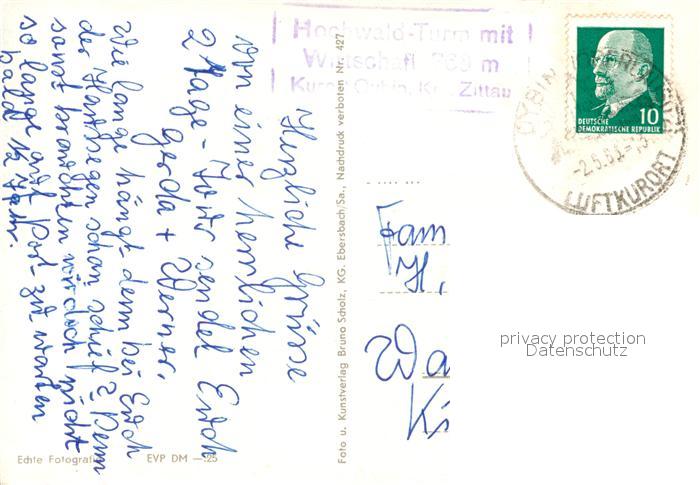 Herzliche Grüsse
von einer herrlichen
2 Tage-Tour sendet Euch
Gerda + Werner.
Wie lange hängt denn bei Euch
der Haussegen schon schief? Denn
sonst brauchten wir doch nicht
so lange auf Post zu warten
bald 12 Jahr.
Echte Fotografie
EVP DM —.25
Foto u. Kunstverlag Bruno Scholz, KG. Ebersbach/Sa., Nachdruck verboten Nr. 427
Hochwald-Turm mit
Wirtschaft 7 m
Kurort Oybin, Kr. Zittau
DEUTSCHE
DEMOKRATISCHE REPUBLIK
10
OYBIN
-2.5.63-
LUFTKURORT
Fam
H,
Wa
Ki
privacy protection
Datenschutz